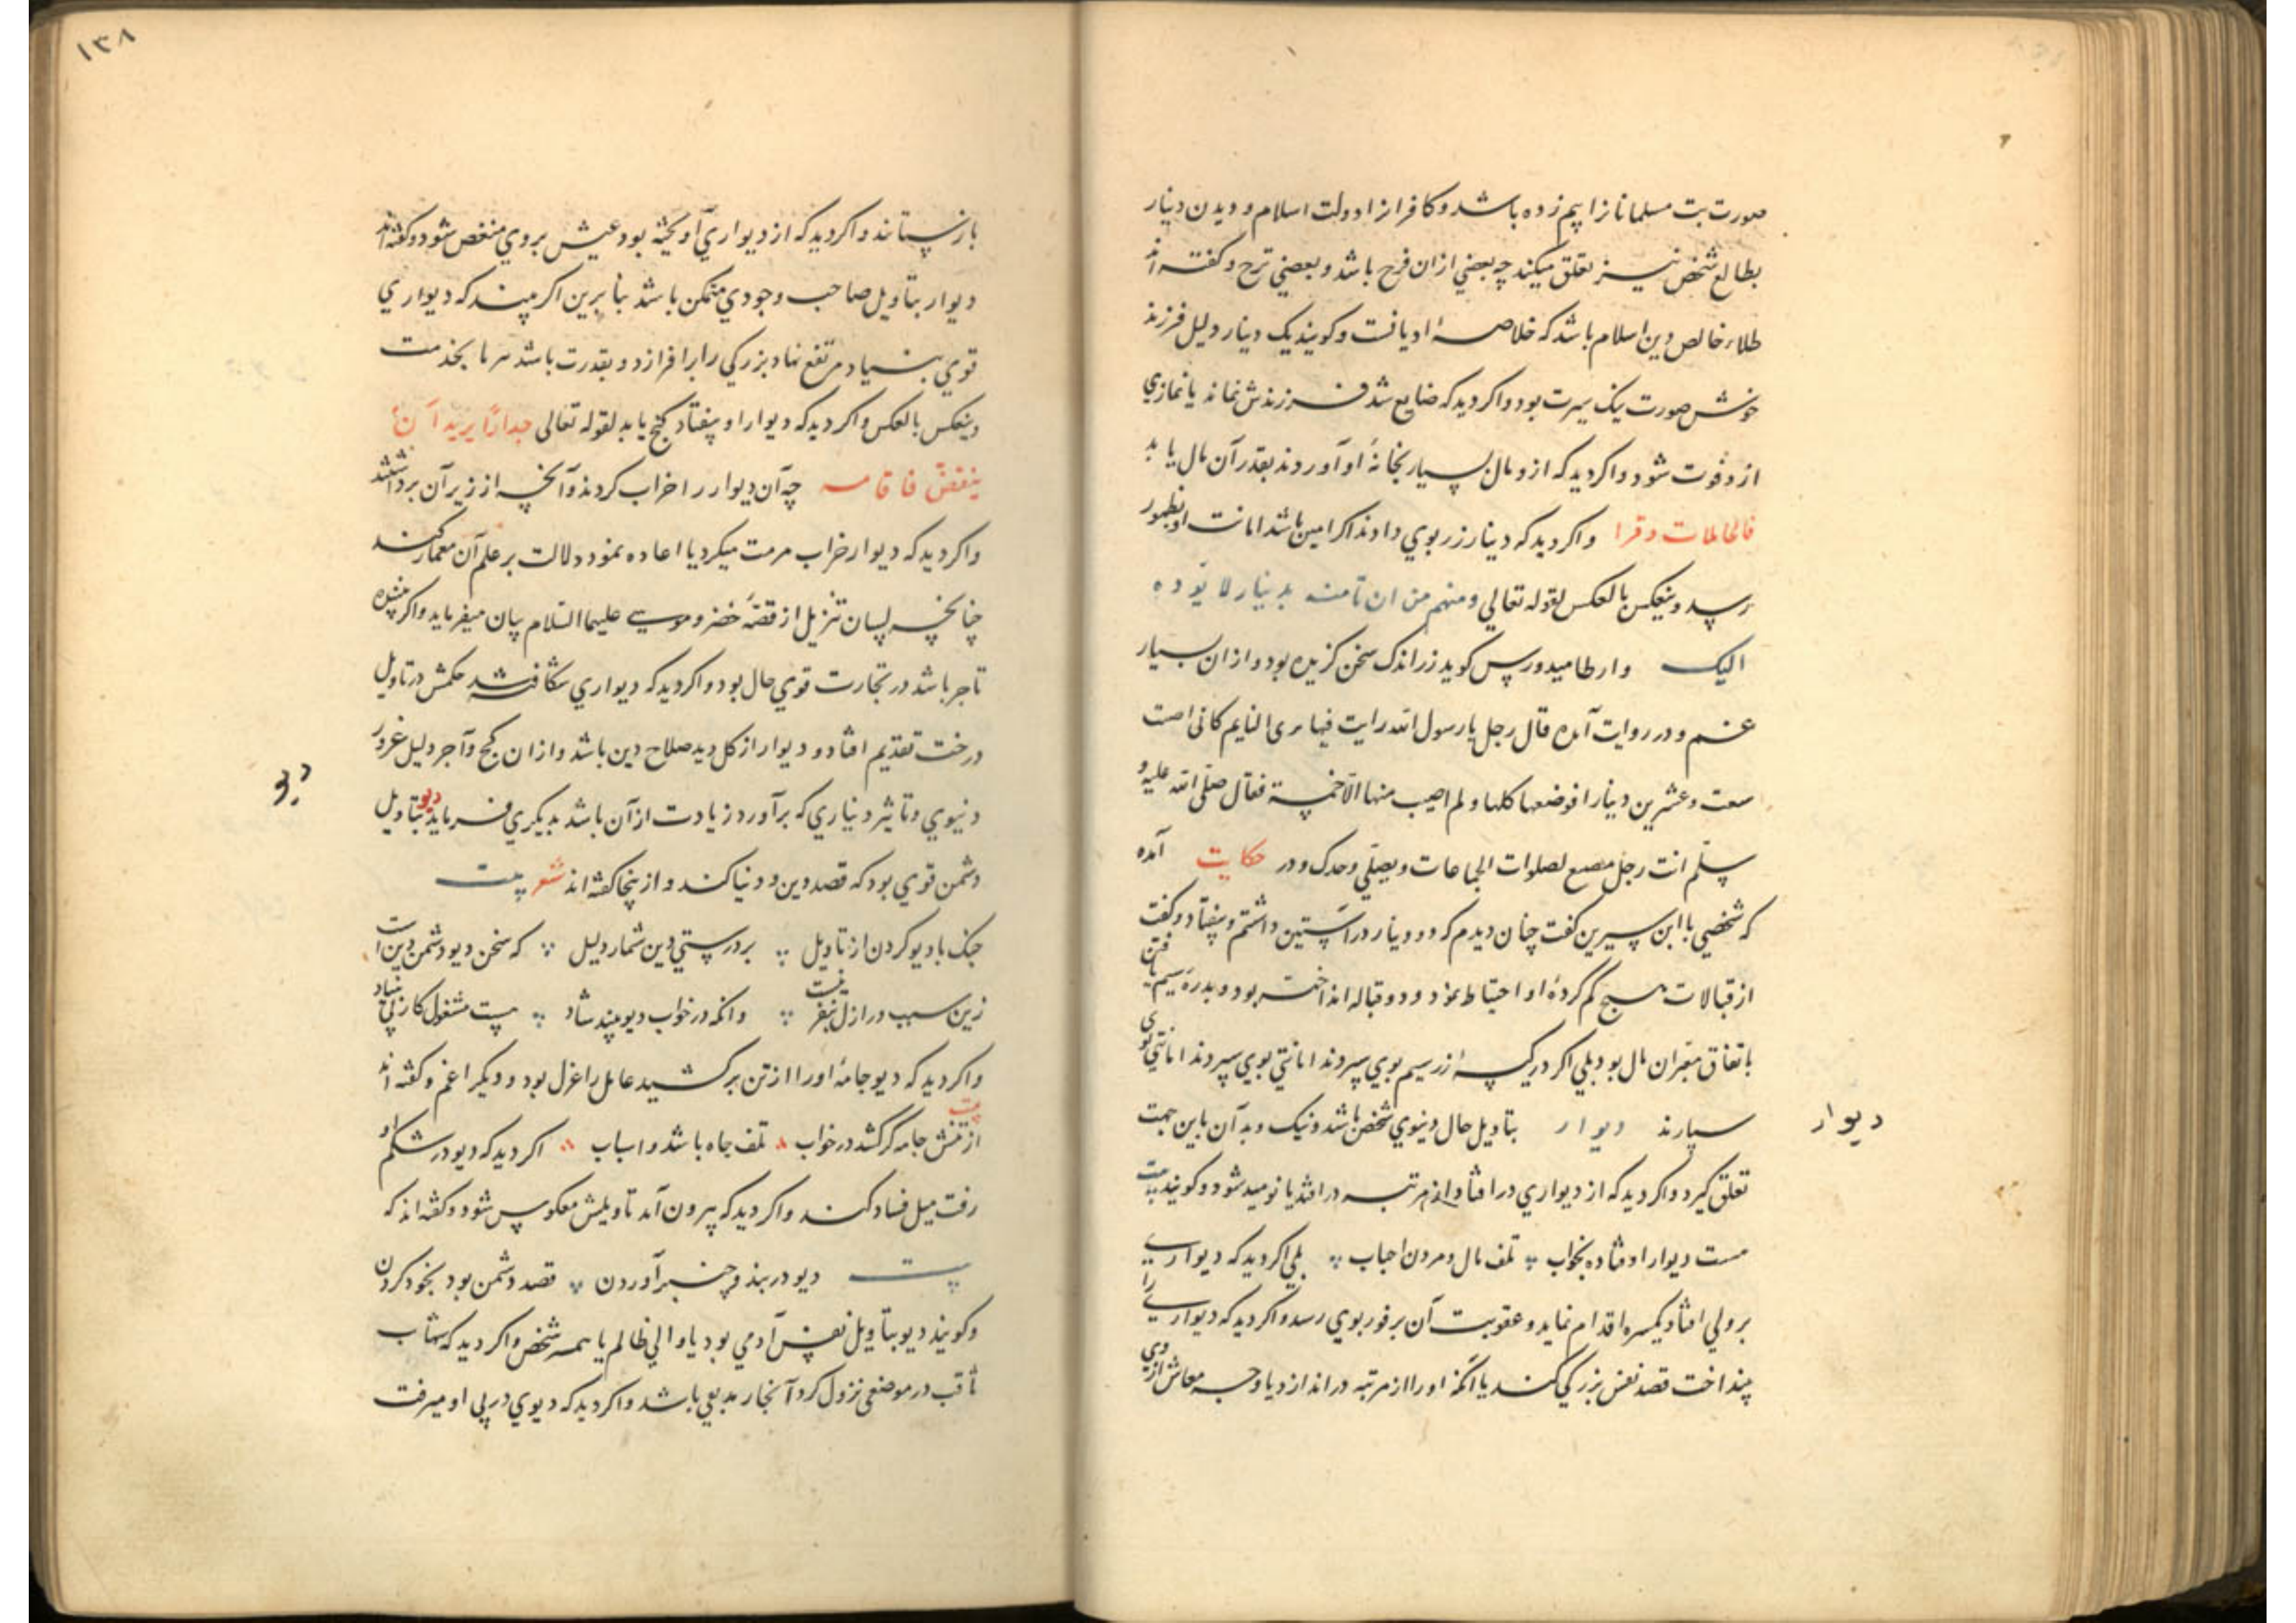 صورت بت مسلمانانرا بیم زده باشد و کافرانرا دولت اسلام و دیدن دینار
بطالع شخص نیز تعلق میکند چه بعضی ازان فرح باشد و بعضی ترح و گفته اند
طلاء خالص دین اسلام باشد که خلاصهٔ ادیانست و گویند یک دینار دلیل فرزند
خوش صورت نیک سیرت بود و اگر دید که ضایع شد فرزندش نماند یا نمازی
ازو فوت شود و اگر دید که ازو مال بسیار بخانهٔ او آوردند بقدر آن مال یابد
فالحاملات وقرا و اگر دید که دینار زر بوی دادند اگر امین باشد امانت او بظهور
رسد و ینعکس بالعکس لقوله تعالی ومنهم من ان تامنه بدینار لا یؤده
الیک و ارطامیدورس گوید زر اندک سخن گزیده بود و ازان بسیار
غم و در روایت آمده قال رجل یا رسول الله رایت فیما یری النایم کانی اصبت
سعت و عشرین دینارا فوضعها کلها و لم اصب منها الا خمسة فقال صلی الله علیه و
سلم انت رجل مضیع لصلوات الجماعات و یصلی وحدک و در حکایت آمده
که شخصی با ابن سیرین گفت چنان دیدم که دو دینار در آستین داشتم و بیفتاد و گفت
از قبالات هیچ گم کردهٔ او احتیاط نمود و دو قباله انداخته بود و بدرهٔ سیم یافتن
باتفاق معبران مال بود بلی اگر در کیسه زر سیم بوی سپردند امانتی بوی سپردند امانتی بوی
سپارند دیوار بتاویل حال دنیوی شخص باشد و نیک و بد آن باین جهت
دیوار
تعلق گیرد و اگر دید که از دیواری در افتاد از مرتبه در افتد یا نومید شود و گویند بیت
هست دیوار اوفتاده بخواب ؞ تلف مال و مردن احباب ؞ بلی اگر دید که دیواری
بر ولی افتاد بکیسره اقدام نماید و عقوبت آن بر فور بوی رسد و اگر دید که دیواری را
بینداخت قصد نفس بزرگی کند یا آنکه او را از مرتبه در اندازد یا وجه معاش از وی
۱۳۸
باز ستانند و اگر دید که از دیواری آویخته بود عیش بر وی منغص شود و گفته اند
دیوار بتاویل صاحب وجودی متمکن باشد بنابرین اگر بیند که دیواری
قوی بنیاد مرتفع نهاد بزرگی را بر افرازد و بقدرت باشد سر ما بخدمت
و ینعکس بالعکس و اگر دید که دیوار او بیفتاد گنج یابد لقوله تعالی جدارًا یرید ان
ینقض فاقامه چه آن دیوار را خراب کردند و آنچه از زیر آن برداشتند
و اگر دید که دیوار خراب مرمت میکرد یا اعاده نمود دلالت بر علم آن معمار کند
چنانچه لسان تنزیل از قصهٔ خضر و موسی علیهما السلام بیان میفرماید و اگر بیننده
تاجر باشد در تجارت قوی حال بود و اگر دید که دیواری شکافته شد حکمش در تاویل
درخت تقدیم افتاد و دیوار از گل دید صلاح دین باشد و ازان گچ و آجر دلیل غرور
دنیوی و تاثیر دنیاری که برآورد زیادت از آن باشد بدیگری فرماید دیو بتاویل
دیو
دشمن قوی بود که قصد دین و دنیا کند و ازینجا گفته اند شعر بیت
جنگ با دیو کردن از تاویل ؞ بر درستی دین شمار دلیل ؞ که سخن دیو دشمن دین است
زین سبب در ازل بنفرینست ؞ وانکه در خواب دیو بیند شاد ؞ هست مشغول کار بی بنیاد
و اگر دید که دیو جامهٔ او را از تن برکشید عامل را عزل بود و دیگر اغم و گفته اند
بیت از تنش جامه گر کشد در خواب ؞ تلف جاه باشد و اسباب ؞ اگر دید که دیو در شکم او
رفت میل فساد کند و اگر دید که بیرون آمد تاویلش معکوس شود و گفته اند که
بیت دیو در بند و چنبر آوردن ؞ قصد دشمن بود بخود کردن
و گویند دیو بتاویل نفس آدمی بود یا والی ظالم یا همسر شخص و اگر دید که شهاب
ثاقب در موضعی نزول کرد آنجا ربدیعی باشد و اگر دید که دیوی در پی او میرفت